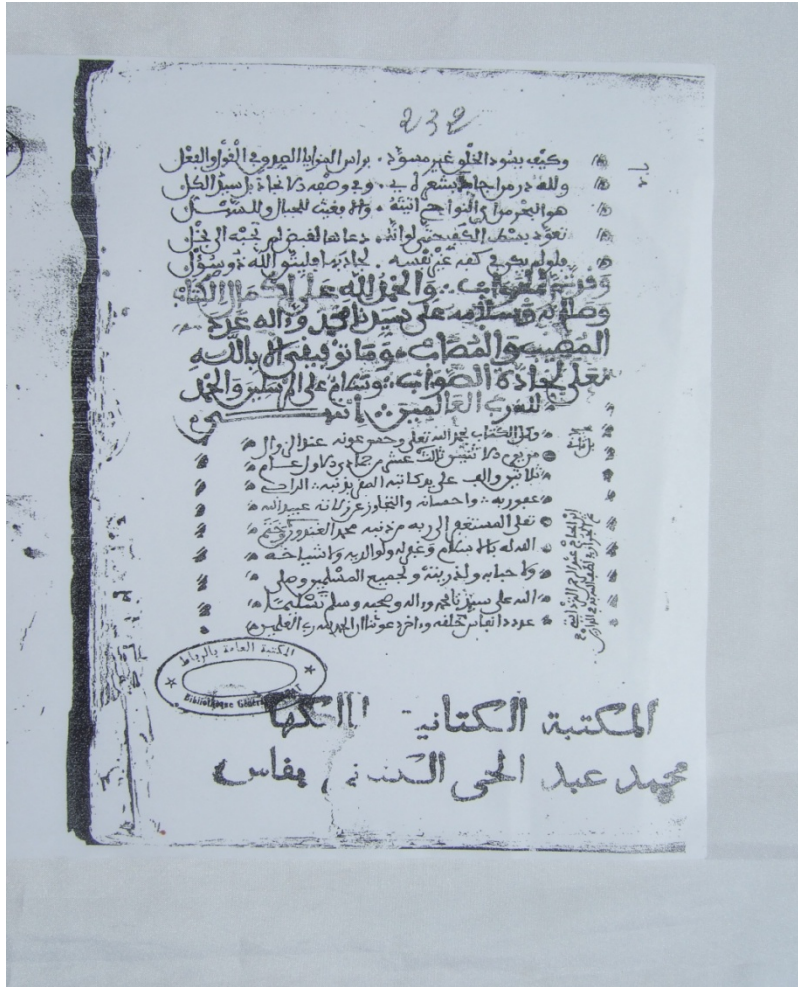 232
وكيف يسود الخلو غير مسود . براس المزايا الصدر في القول والفعل
ولله در من اجاد بشعره
هو البحر من اي النواحي اتيته
تعود بسط الكف حتى لو انه . دعاها لقبض لم تجبه الى بخل
فلو لم يكن في كفه غير نفسه . لجاد بها فليتق الله ذو سؤل
والحمد لله على اكمال الكتاب
وصلاته وسلامه على سيدنا محمد وءاله عدد
المصيب والمصاب وما توفيقي الا بالله
تعلى لجادة الصواب وسلام على المرسلين والحمد
لله رب العالمين انتهى
وكمل الكتاب بحمد الله تعلى وحسن عونه عند الزوال
من يوم الاثنين ثالث عشر جمادى الاول عام
ثلاثين والف على يد كاتبه المقر بذنبه الراجي
عفو ربه واحسانه والتجاوز عن زلاته عبيد الله
تعلى المستغفر الى ربه من ذنبه محمد الغندور ختم
الله له بالاسلام وغفر له ولوالديه ولاشياخه
ولاحبابه ولذريته ولجميع المسلمين وصلى
الله على سيدنا محمد وءاله وصحبه وسلم تسليما
عدد انفاس خلقه وءاخر دعونا ان الحمد لله رب العلمين
المكتبة العامة بالرباط
Bibliothèque Générale
المكتبة الكتانية لمالكها
محمد عبد الحي الكتاني بفاس